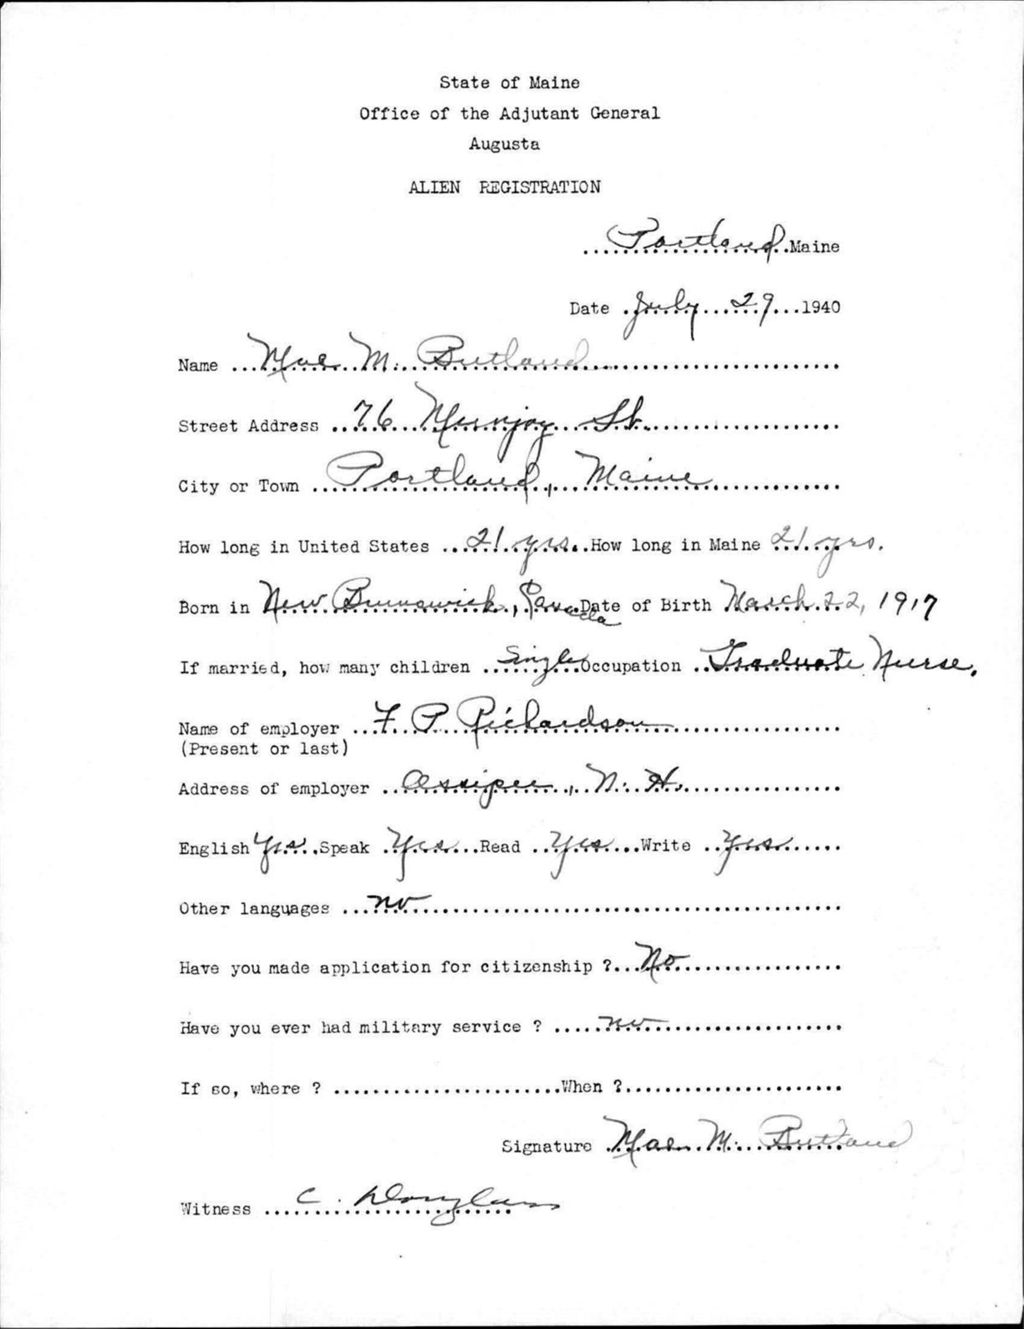 State of Maine
Office of the Adjutant General
Augusta
ALIEN REGISTRATION
Portland Maine
Date July 29 1940
Name Mae M. Butland
Street Address 76 Munjoy St.
City or Town Portland, Maine
How long in United States 21 yrs. How long in Maine 21 yrs.
Born in New Brunswick, Canada Date of Birth March 22, 1917
If married, how many children Single Occupation Graduate Nurse.
Name of employer F. P. Richardson
(Present or last)
Address of employer Ossipee, N. H.
English Yes. Speak Yes Read Yes Write Yes
Other languages no
Have you made application for citizenship ? No
Have you ever had military service ? no
If so, where ? When ?
Signature Mae M. Butland
Witness C. Douglass